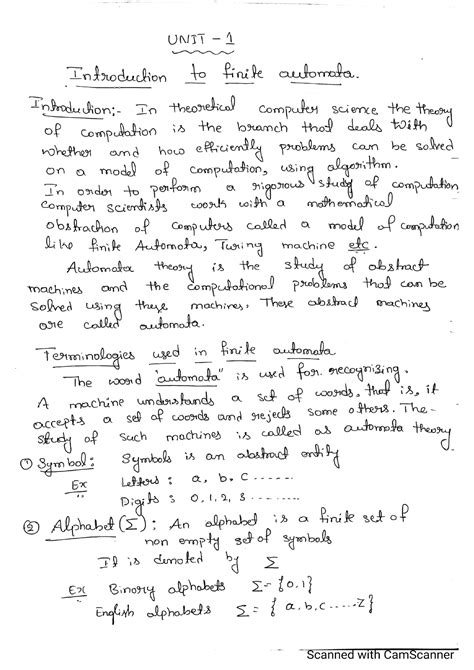 UNIT - 1
Introduction to finite automata.
Introduction:- In theoretical computer science the theory
of computation is the branch that deals with
whether and how efficiently problems can be solved
on a model of computation, using algorithm.
In order to perform a rigorous study of computation
computer scientists work with a mathematical
abstraction of computers called a model of computation
like finite Automata, Turing machine etc.
Automata theory is the study of abstract
machines and the computational problems that can be
solved using these machines. These abstract machines
are called automata.
Terminologies used in finite automata
The word "automata" is used for recognising.
A machine understands a set of words, that is, it
accepts a set of words and rejects some others. The-
study of such machines is called as automata theory
① Symbol: Symbols is an abstract entity
Ex Letters : a, b, c ......
Digits : 0, 1, 2, 3 ........
② Alphabet (Σ) : An alphabet is a finite set of
non empty set of symbols
It is denoted by Σ
Ex Binary alphabets Σ = {0,1}
English alphabets Σ = { a, b, c .....z}
Scanned with CamScanner